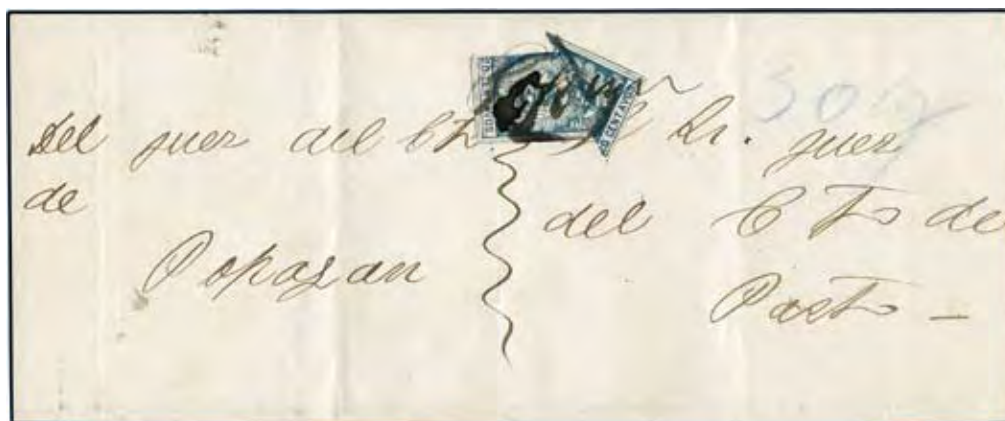 del juez del Cto.
de
Popayan
Al Sr. juez
del Cto de
Pasto –
CENTAVOS